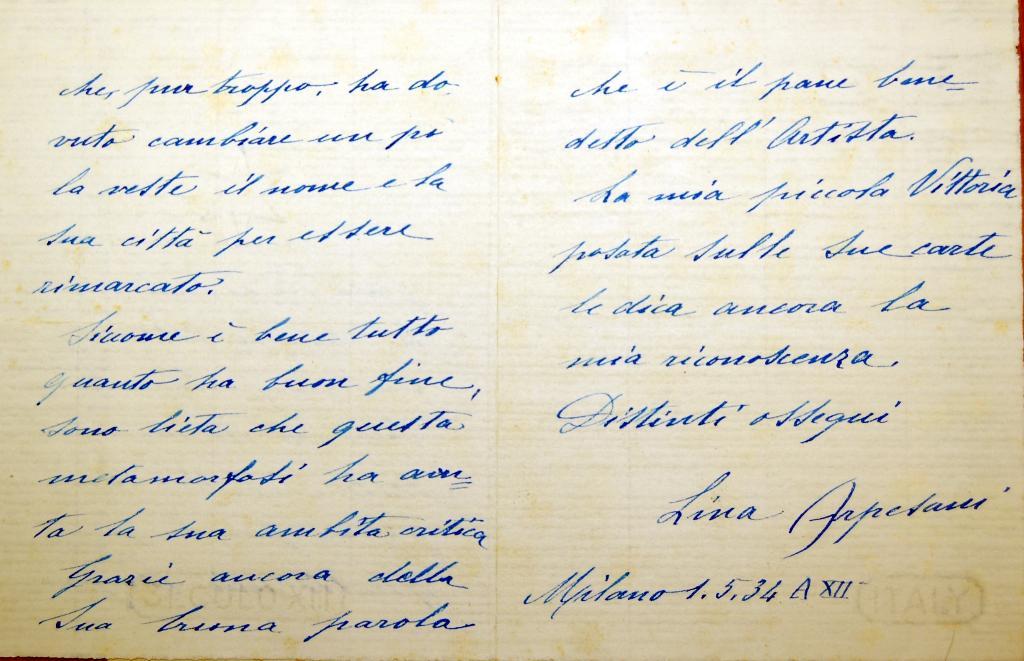 che, pur troppo, ha do
vuto cambiare un pò
la veste il nome e la
sua città per essere
rimarcato.
Siccome è bene tutto
quanto ha buon fine,
sono lieta che questa
metamorfosi ha avu=
ta la sua ambita critica
Grazie ancora della
Sua buona parola
che è il pane bene=
detto dell' Artista.
La mia piccola Vittoria
posata sulle sue carte
le dica ancora la
mia riconoscenza.
Distinti ossequi
Lina Arpesani
Milano 1.5.34 A XII
SECULO XII
ITALY